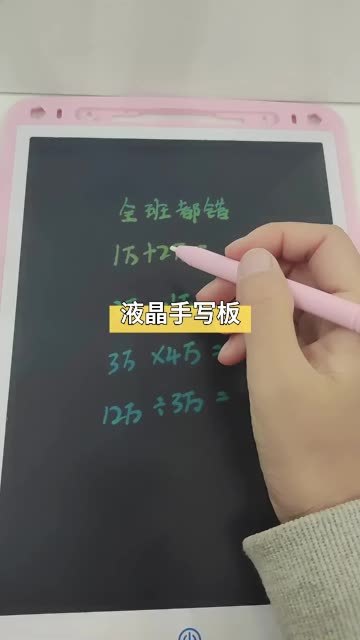 全班都错
1万+2万=
液晶手写板
3万×4万=
12万÷3万=